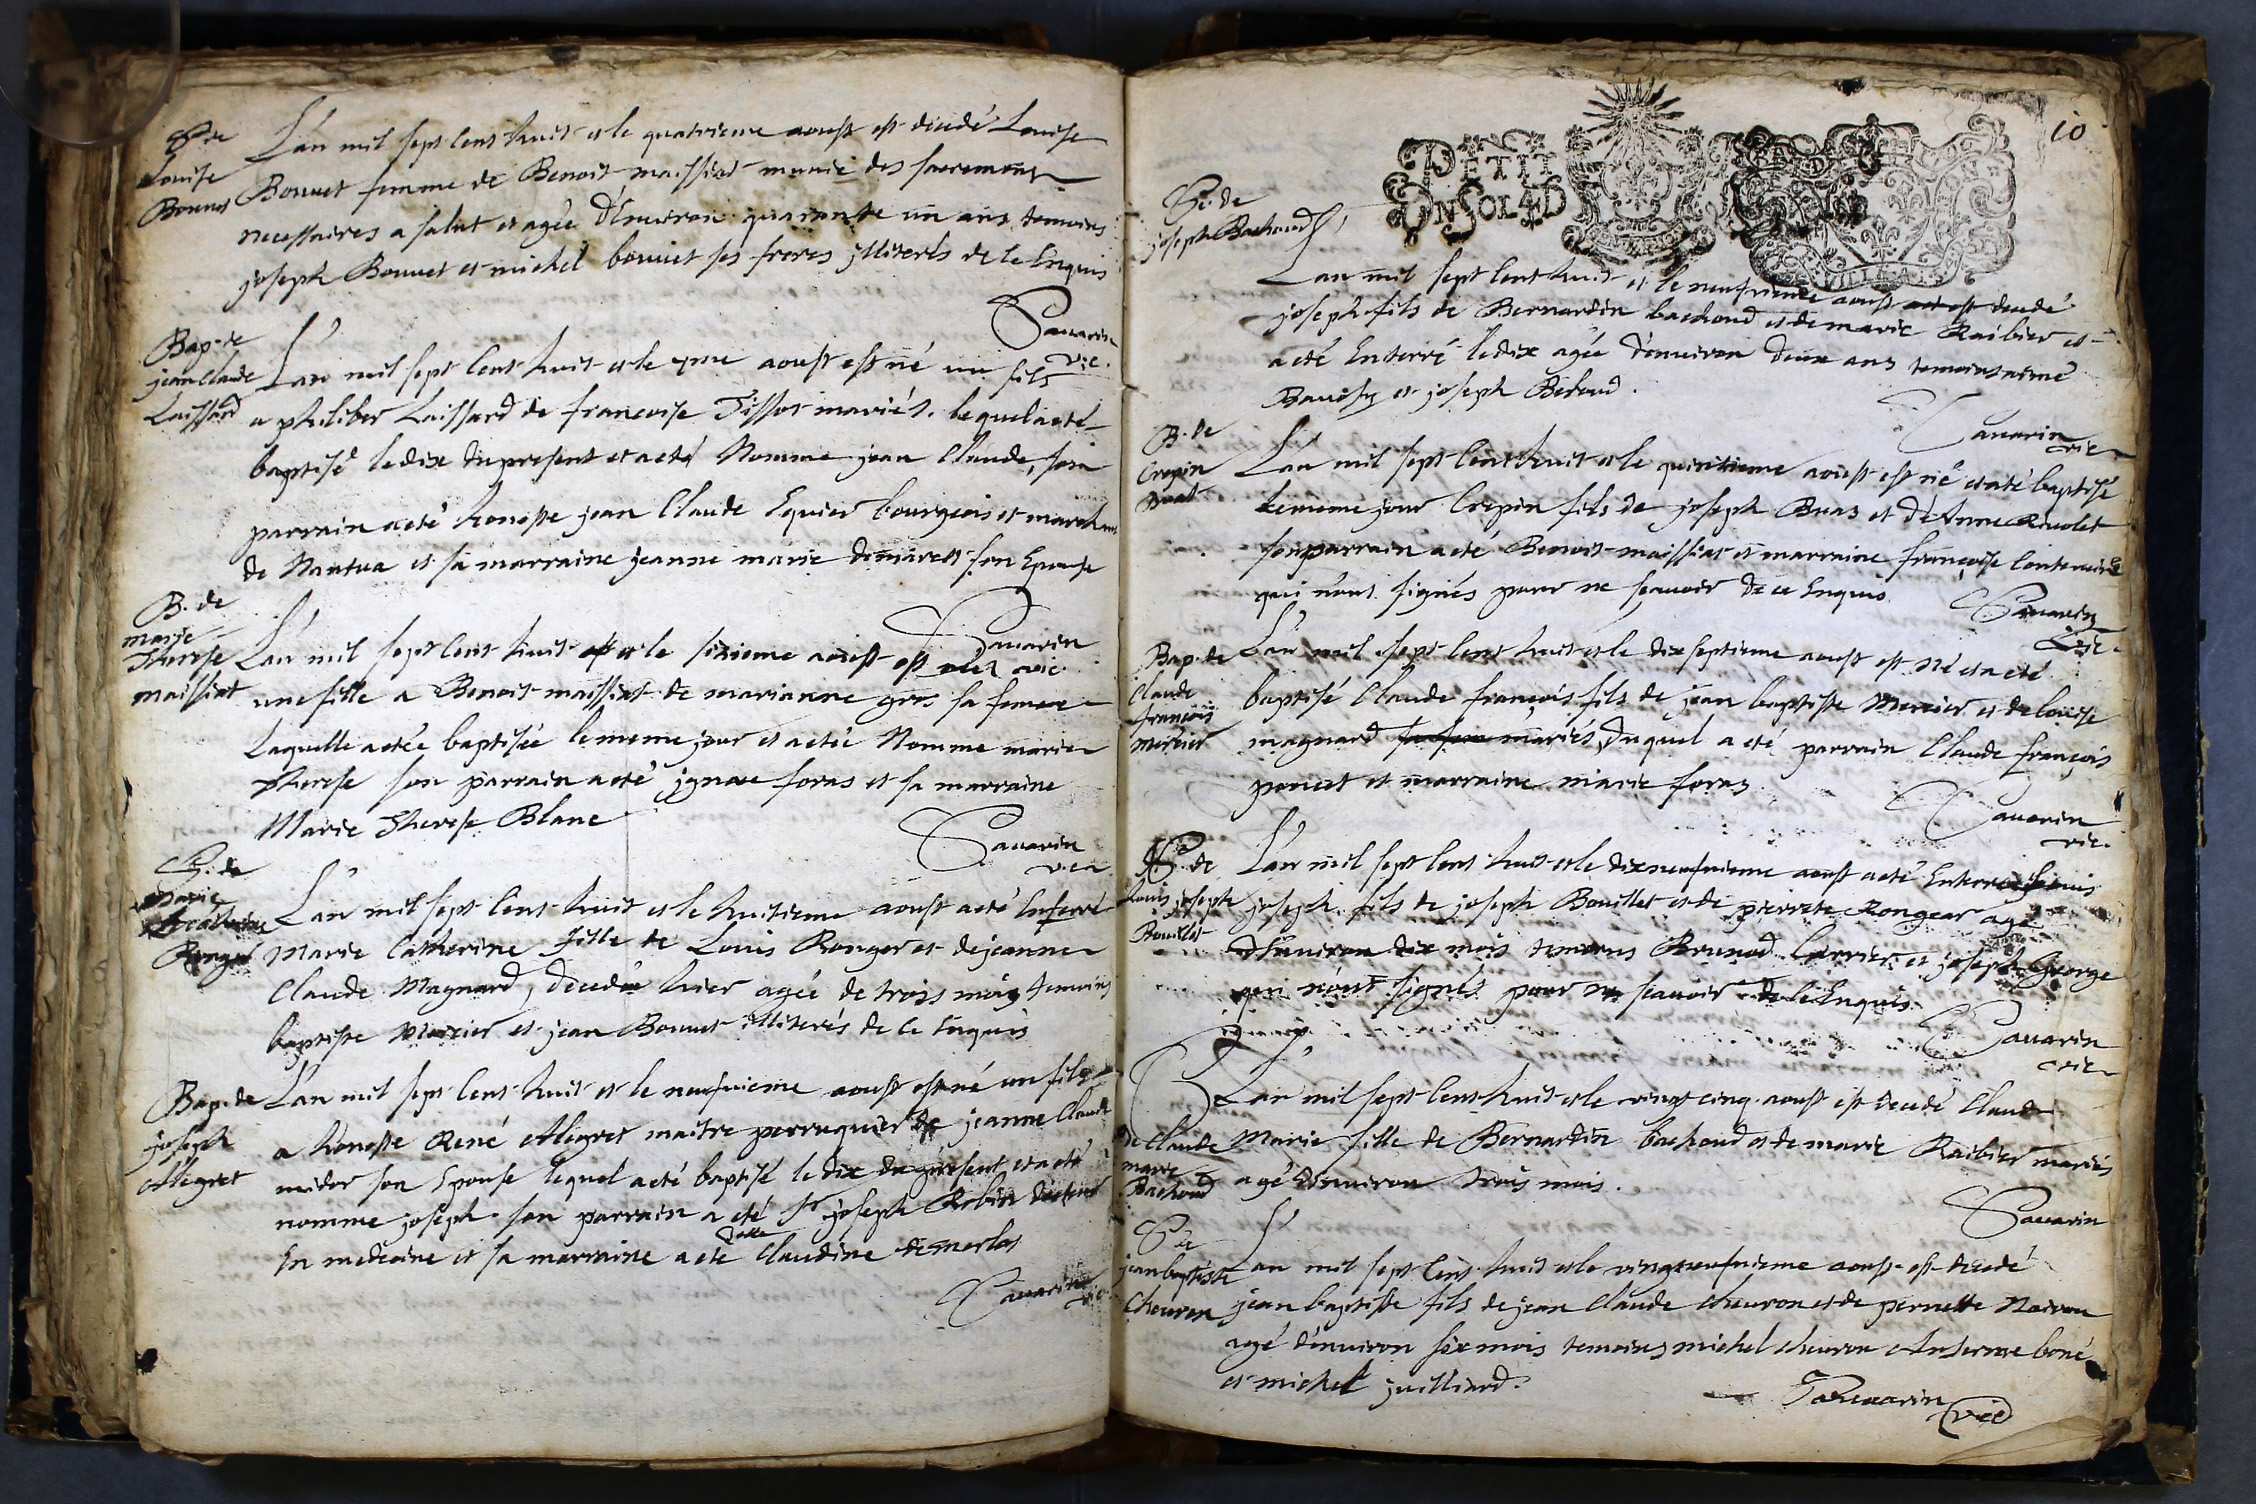 S. de
Louise
Bonnet
L'an mil sept cent huit et le quatrieme aoust est decedé Louise
Bonnet femme de Benoit maissiat munie des sacremens
necessaires a salut et agée d'enuiron quarante un ans temoins
joseph Bonnet et michel bonnet ses freres illiterés de ce Enquis
Sauarin
vic.
Bap. de
jean Claude
Laissard
L'an mil sept cent huit et le 4me aoust est né un fils
a philiber Laissard de francoise Tissot mariés. lequel a eté
baptisé le dix du present et a eté Nomme jean Claude, son
parrain a eté honeste jean Claude Equier bourgeois et marchand
de Nantua et sa marraine jeanne marie son Epouse
Sauarin
vic.
B. de
marie
Therese
maissiat
L'an mil sept cent huit et le sixieme aoust est née
une fille a Benoit maissiat de marianne gros sa femme
Laquelle a etée baptisée le meme jour et a etée Nomme marie
Therese son parrain a eté ignace foras et sa marraine
Marie Therese Blanc
Sauarin
vic.
S. de
Marie
Catherine
Ronger
L'an mil sept cent huit et le huitieme aoust a eté Enterré
Marie Catherine fille de Louis Ronger et de jeanne
Claude Magnard, decedée hier agée de trois mois temoins
baptiste Mercier et jean Bonnet illiterés de ce Enquis
Bap. de
joseph
Alegret
L'an mil sept cent huit et le neufuieme aoust est né un fils
a honeste René Alegret maitre perruquier de jeanne Claude
midor son Epouse lequel a eté baptisé le dix du present et a eté
nomme joseph. son parrain a eté Sr joseph Robin docteur
En medecine et sa marraine a eté Delle Claudine desmerlas
Sauarin
vic.
10
PETIT
ON SOL 4 D
S. de
joseph Bachoud
L'an mil sept cent huit et le neufuieme aoust est decedé
joseph fils de Bernardin bachoud et de marie Raibier et
a eté Enterré le dix agée d'enuiron deux ans temoins aimé
et joseph Beroud.
Sauarin
vic.
B. de
Crepin
Buat
L'an mil sept cent huit et le quinzieme aoust est né et a eté baptisé
le meme jour Crepin fils de joseph Buat et d'Anne Riuolet
son parrain a eté Benoit maissiat et marraine françoise
qui n'ont signés pour ne sçauoir de ce Enquis
Sauarin
vic.
Bap. de
Claude
françois
mercier
L'an mil sept cent huit et le dix septieme aoust est né et a eté
baptisé Claude françois fils de jean baptiste Mercier et de louise
magnard mariés, duquel a eté parrain Claude françois
poncet et marraine marie foras
Sauarin
vic.
S. de
Louis joseph
Bouillet
L'an mil sept cent huit et le dix neufuieme aoust a eté Enterré Louis
joseph fils de joseph Bouillet et de pierrete Rongear agé
d'enuiron dix mois temoins Brunod Carrier et joseph George
qui n'ont signés pour ne scauoir de ce Enquis
Sauarin
vic.
S.
de Claude
marie
Bachoud
L'an mil sept cent huit et le vingt cinq aoust est decedé Claude
Marie fille de Bernardin bachoud et de marie Raibier mariés
agé d'enuiron trois mois.
Sauarin
S. de
jean baptiste
Cheuron
L'an mil sept cent huit et le vingt neufuieme aoust est decedé
jean baptiste fils de jean Claude cheuron et de pernette Noiron
agé d'enuiron six mois temoins michel cheuron boné
et michel juilliard.
Sauarin
vic